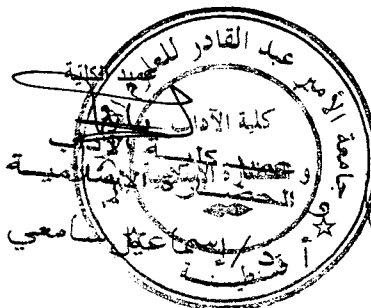 جامعة الأمير عبد القادر للعلوم
عميد الكلية
كلية الآداب
عميد كلية الآداب
و الحضارة الإسلامية
أ د/إسماعيل سامعي
قسنطينة